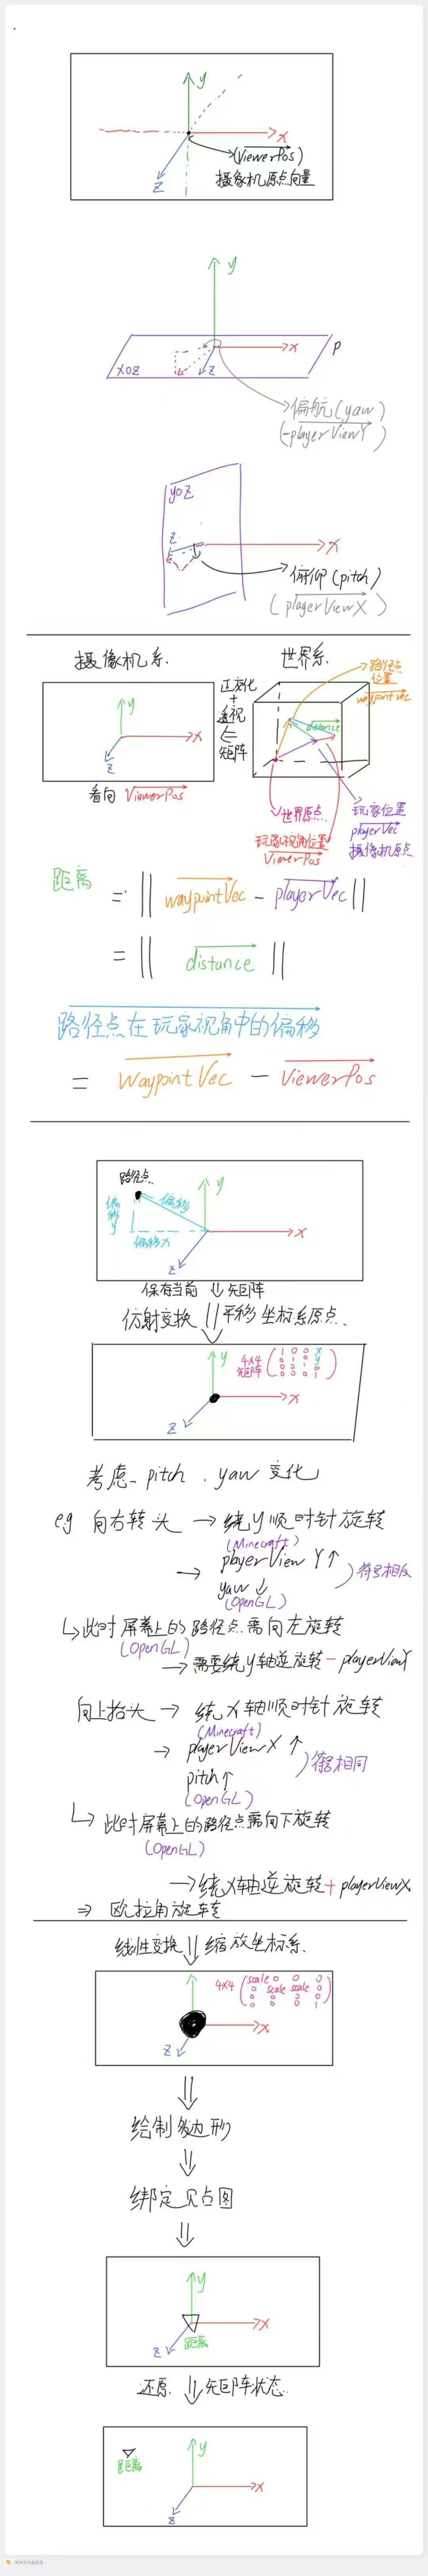 y
x
(ViewerPos)
摄象机原点向量
z
y
x
P
XOZ
z
偏航(yaw)
(-playerViewY)
yoz
z
x
俯仰(pitch)
(playerViewX)
摄像机系
世界系
路径点
位置
waypointVec
y
x
z
正交化
+
透视
⇐
矩阵
distance
看向 ViewerPos
世界原点
玩家视角位置
ViewerPos
玩家位置
playerVec
摄像机原点
距离 = || waypointVec - playerVec ||
= || distance ||
路径点在玩家视角中的偏移
= WaypointVec - ViewerPos
路径点
偏移
偏移y
偏移x
y
x
z
保存当前 ⇓ 矩阵
仿射变换 平移坐标系原点
y
4X4
矩阵
1 0 0 x
0 1 0 y
0 0 1 0
0 0 0 1
x
z
考虑 pitch、yaw 变化
eg 向右转头 → 绕Y顺时针旋转
(Minecraft)
→ playerViewY↑
yaw↓
(OpenGL)
符号相反
↳此时屏幕上的路径点需向左旋转
(OpenGL)
→ 需要绕Y轴逆旋转 - playerViewY
向上抬头 → 绕X轴顺时针旋转
(Minecraft)
→ playerViewX↑
pitch↑
(OpenGL)
符号相同
↳ 此时屏幕上的路径点需向下旋转
(OpenGL)
→绕X轴逆旋转+playerViewX
⇒ 欧拉角旋转
线性变换 ⇓ 缩放坐标系
4X4
scale 0 0 0
0 scale scale 0
0 0 0 1
x
z
⇓
绘制多边形
⇓
绑定贴图
⇓
y
x
z
距离
还原 ⇓ 矩阵状态
距离
y
x
z